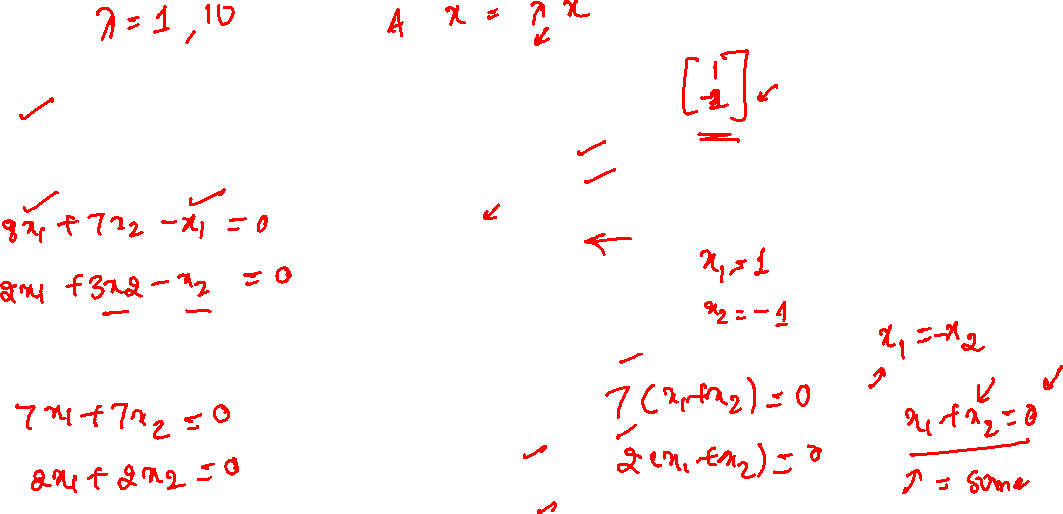 λ = 1, 10
A x = λ x
[ 1
-1 ]
8x₁ + 7x₂ - x₁ = 0
2x₁ + 3x2 - x₂ = 0
x₁ = 1
x₂ = -1
x₁ = -x₂
7x₁ + 7x₂ = 0
2x₁ + 2x₂ = 0
7(x₁+x₂) = 0
2(x₁+x₂) = 0
x₁ + x₂ = 0
λ = some